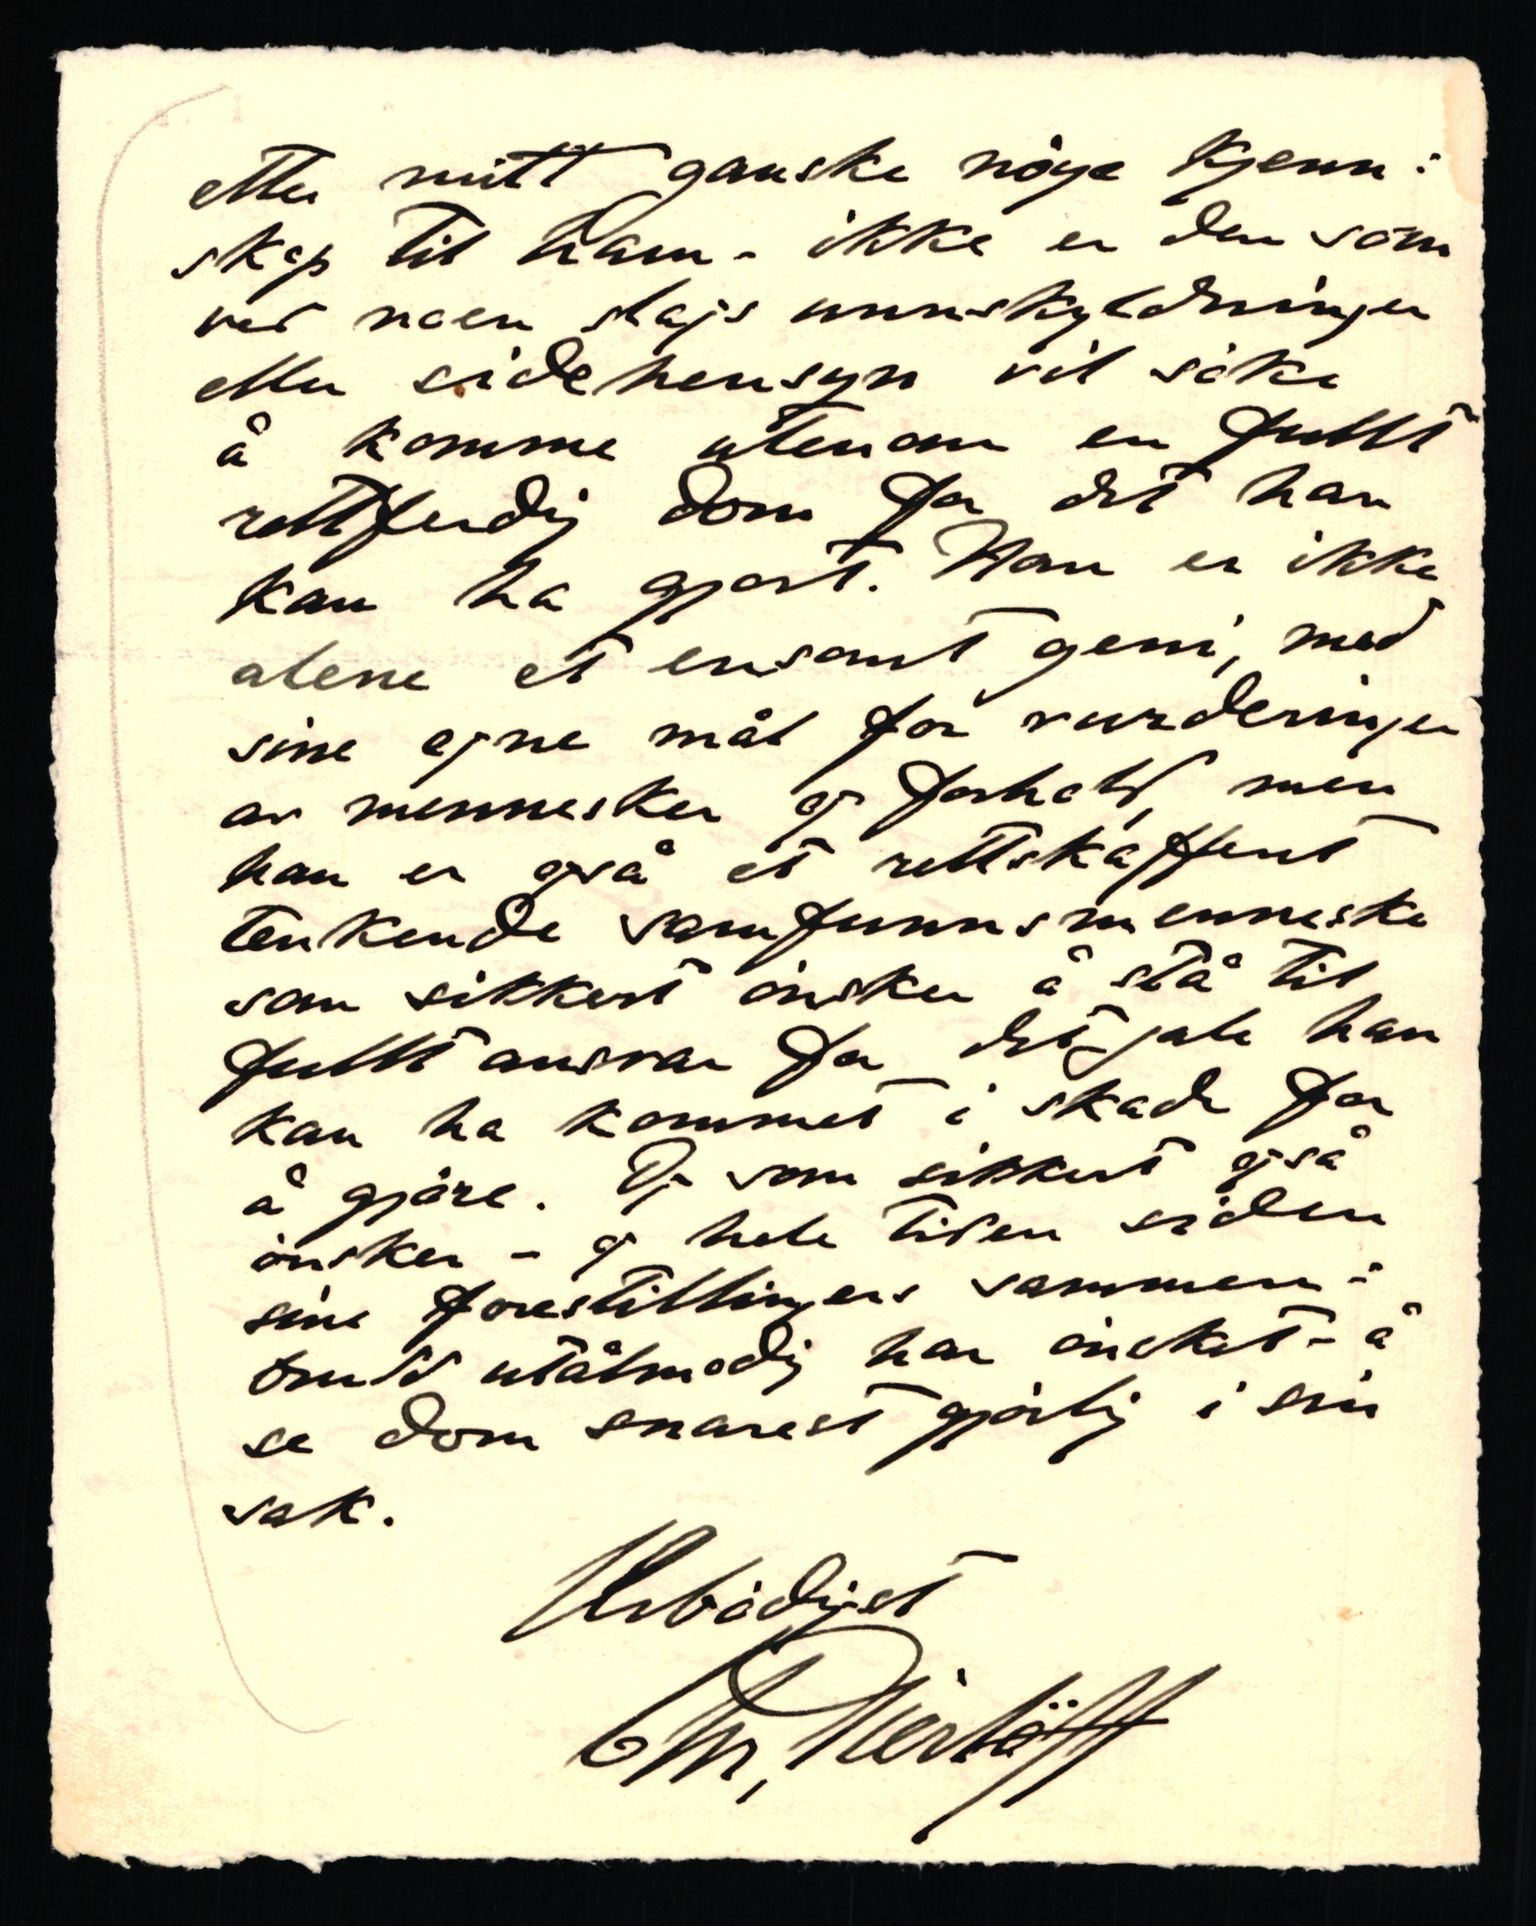 etter mitt ganske nöye kjenn:
skap til ham - ikke er den som
ved noen slags unnskyldninger
eller sidehensyn vil söke
å komme utenom en fullt
rettferdig dom for det han
kan ha gjort. Han er ikke
alene et ensomt geni, med
sine egne mål for vurderinger
av mennesker og forhold, men
han er også et rettskaffent
tenkende samfunnsmenneske
som sikkert önsker å stå til
fullt ansvar for det gale han
kan ha kommet i skade for
å gjöre. Og som sikkert også
önsker - og hele tiden siden
sine forestillingers sammen:
brudd utålmodig har önsket - å
se dom snarest gjörlig i sin
sak.
Ærbödigst
Chr. Pierlöff